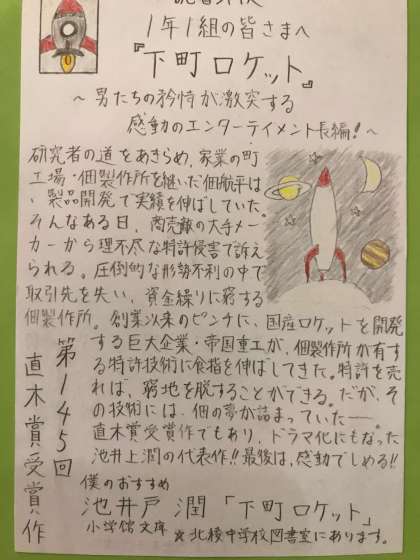 1年1組の皆さまへ
『下町ロケット』
～男たちの矜恃が激突する
感動のエンターテイメント長編!～
研究者の道をあきらめ、家業の町
工場・佃製作所を継いだ佃航平は
、製品開発で実績を伸ばしていた。
そんなある日、商売敵の大手メー
カーから理不尽な特許侵害で訴え
られる。圧倒的な形勢不利の中で
取引先を失い、資金繰りに窮する
佃製作所。創業以来のピンチに、国産ロケットを開発
する巨大企業・帝国重工が、佃製作所が有す
る特許技術に食指を伸ばしてきた。特許を売
れば、窮地を脱することができる。だが、そ
の技術には、佃の夢が詰まっていた―。
直木賞受賞作でもあり、ドラマ化にもなった
池井上潤の代表作!!最後は、感動でしめる!!
第145回
直木賞受賞作
僕のおすすめ
池井戸 潤「下町ロケット」
小学館文庫 ※北稜中学校図書室にあります。